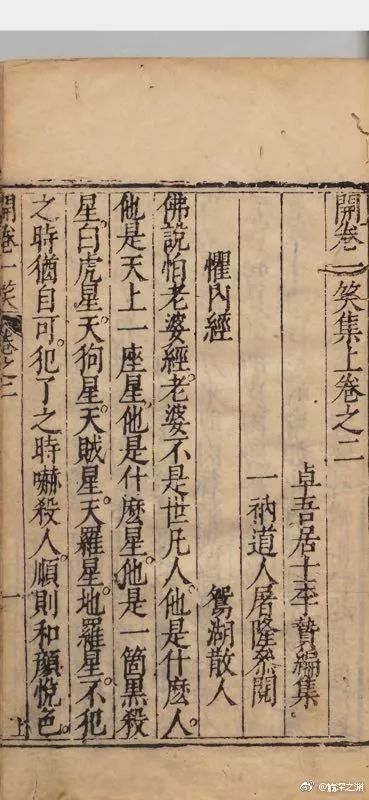 開卷一笑集上卷之二
卓吾居士李贄編集
一衲道人屠隆叅閱
懼內經 鴛湖散人
佛說怕老婆經。老婆不是世凡人。他是什麽人。
他是天上一座星。他是什麽星。他是一箇黑殺
星。白虎星。天狗星。天賊星。天羅星。地羅星。不犯
之時猶自可。犯了之時嚇殺人。順則和顏悅色。
開卷一笑 卷之二 一 上